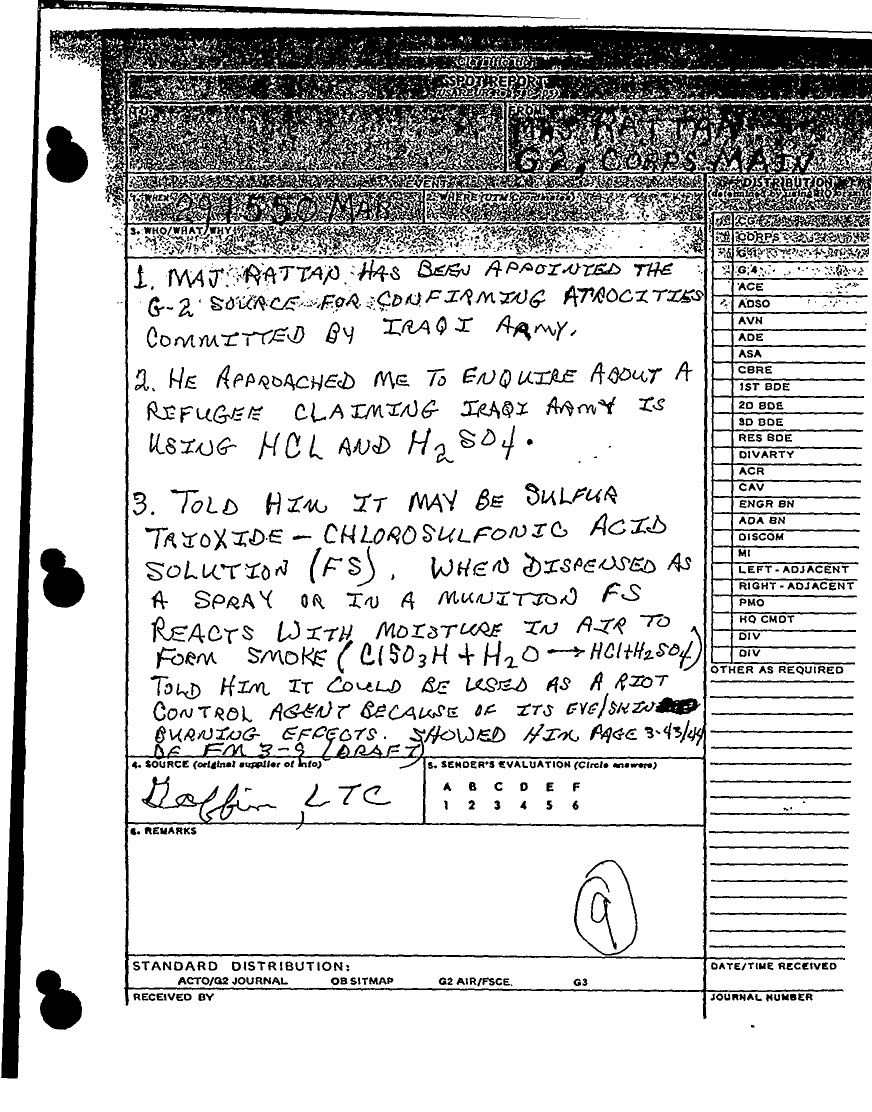 SPOT REPORT
FROM
MAJ RATTAN
G2, CORPS MAIN
1. WHEN
291550 MAR
2. WHERE (UTM Coordinates)
3. WHO/WHAT/WHY
1. MAJ RATTAN HAS BEEN APPOINTED THE
G-2 SOURCE FOR CONFIRMING ATROCITIES
COMMITTED BY IRAQI ARMY.
2. HE APPROACHED ME TO ENQUIRE ABOUT A
REFUGEE CLAIMING IRAQI ARMY IS
USING HCL AND H2SO4.
3. TOLD HIM IT MAY BE SULFUR
TRIOXIDE - CHLOROSULFONIC ACID
SOLUTION (FS). WHEN DISPENSED AS
A SPRAY OR IN A MUNITION FS
REACTS WITH MOISTURE IN AIR TO
FORM SMOKE (ClSO3H + H2O → HCl+H2SO4)
TOLD HIM IT COULD BE USED AS A RIOT
CONTROL AGENT BECAUSE OF ITS EYE/SKIN
BURNING EFFECTS. SHOWED HIM PAGE 3-43/44
OF FM 3-9 (DRAFT)
4. SOURCE (original supplier of info)
LTC
5. SENDER'S EVALUATION (Circle answers)
A B C D E F
1 2 3 4 5 6
6. REMARKS
9
STANDARD DISTRIBUTION:
ACTO/G2 JOURNAL OB SITMAP G2 AIR/FSCE. G3
RECEIVED BY
DISTRIBUTION
CG
CORPS
G4
ACE
ADSO
AVN
ADE
ASA
CBRE
1ST BDE
2D BDE
3D BDE
RES BDE
DIVARTY
ACR
CAV
ENGR BN
ADA BN
DISCOM
MI
LEFT-ADJACENT
RIGHT-ADJACENT
PMO
HQ CMDT
DIV
DIV
OTHER AS REQUIRED
DATE/TIME RECEIVED
JOURNAL NUMBER